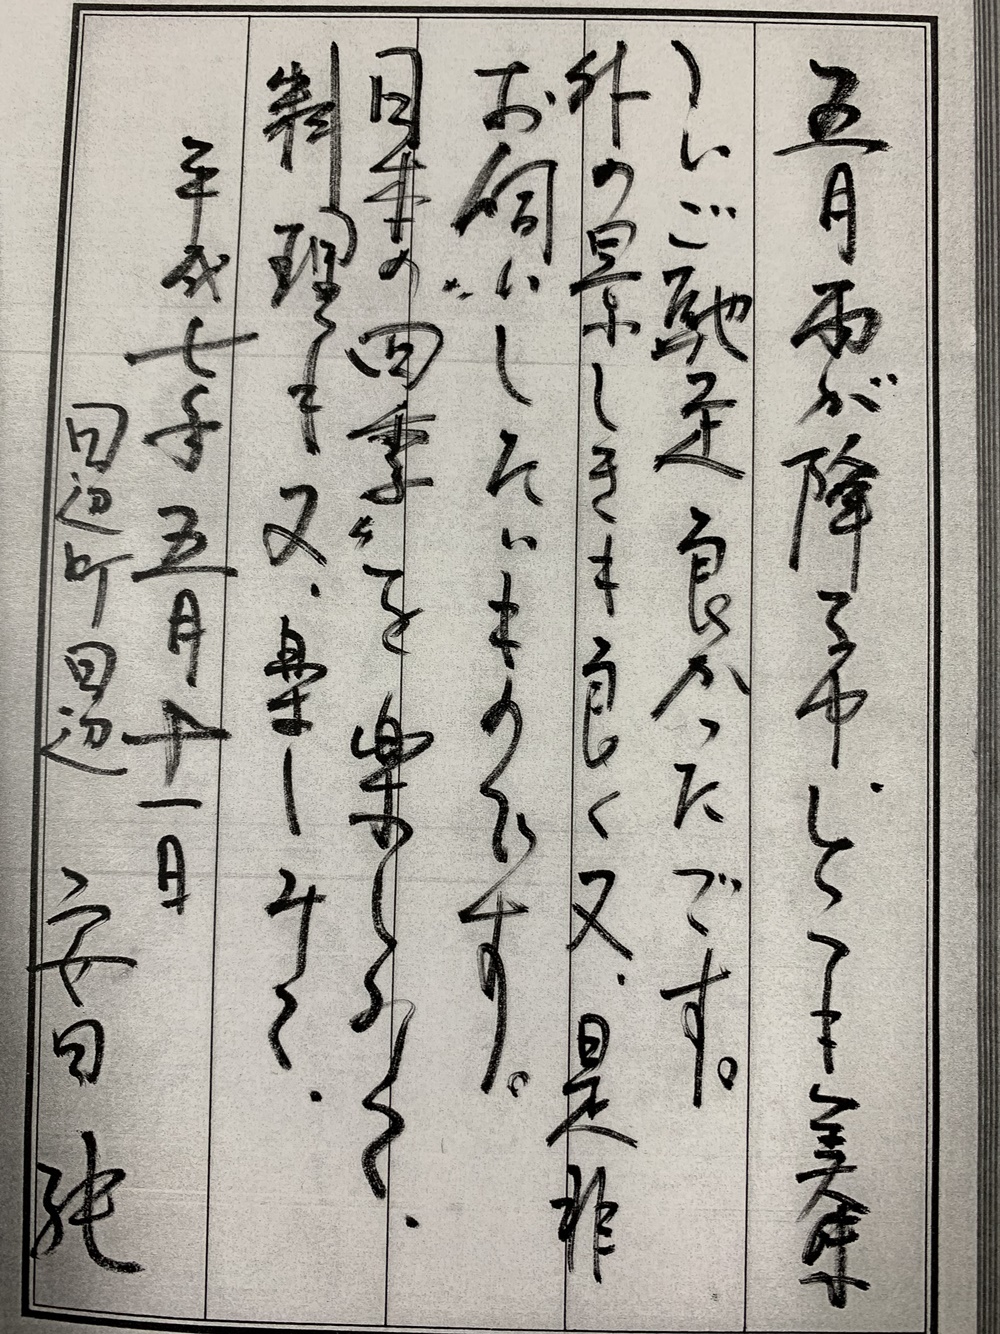 五月雨が降る中、とても美味
しいご馳走良かったです。
外の景しきも良く又、是非
お伺いしたいものです。
日本の四季〃を楽しみ
料理して又、楽しみ
平成七年五月十一日
田辺町田辺 安田